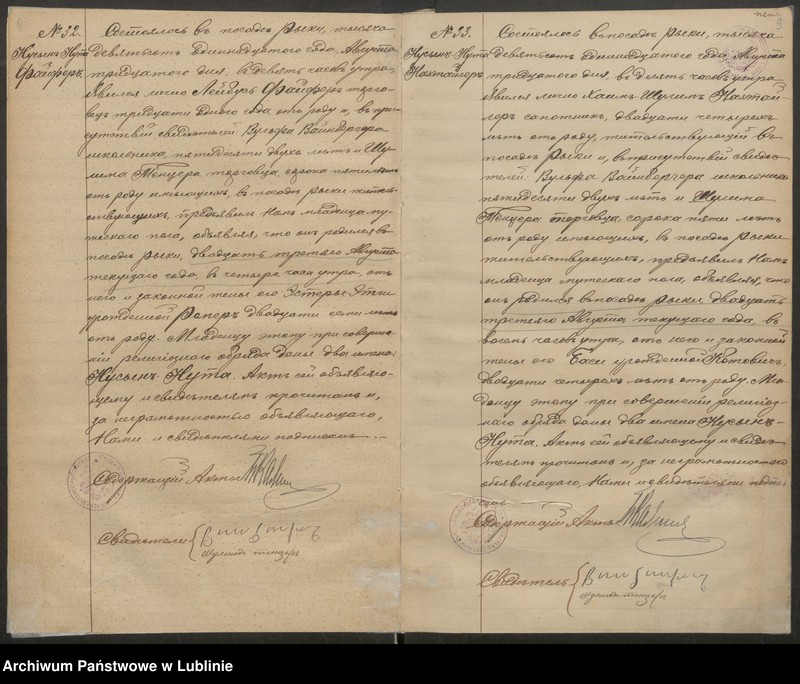 № 32.
Нусынъ Нута
Файферъ.
Состоялось въ посадѣ Рыки, тысяча
девятьсотъ одиннадцатаго года, Августа
тридцатаго дня, въ девять часовъ утра,
явился лично Лейбусь Файферъ торго-
вецъ тридцати одного года отъ роду и, въ при-
сутствіи свидѣтелей: Вульфа Вайнбергера
школьника, пятидесяти двухъ лѣтъ и Шу-
лима Тенцера торговца, сорока пяти лѣтъ
отъ роду имѣющихъ, въ посадѣ Рыки житель-
ствующихъ, предъявилъ Намъ младенца му-
жескаго пола, объявляя, что онъ родился въ
посадѣ Рыки, двадцать третьяго Августа
текущаго года, въ четыре часа утра, отъ
него и законной жены его Эстеры
урожденной двадцати семи лѣтъ
отъ роду. Младенцу этому при соверше-
ніи религіознаго обряда даны два имена
Нусынъ-Нута. Актъ сей объявляю-
щему и свидѣтелямъ прочитанъ и,
за неграмотностью объявляющаго,
Нами и свидѣтелями подписанъ.
Содержащій Акты
Свидѣтели
Шулимъ Тенцеръ
№ 33.
Нусынъ Нута
Нахтайлеръ
Состоялось въ посадѣ Рыки, тысяча
девятьсотъ одиннадцатаго года, Августа
тридцатаго дня, въ девять часовъ утра,
явился лично Хаимъ-Шулимъ Нахтай-
леръ сапожникъ, двадцати четырехъ
лѣтъ отъ роду, жительствующій въ
посадѣ Рыки и, въ присутствіи свидѣ-
телей: Вульфа Вайнбергера школьника
пятидесяти двухъ лѣтъ и Шулима
Тенцера торговца, сорока пяти лѣтъ
отъ роду имѣющихъ, въ посадѣ Рыки
жительствующихъ, предъявилъ Намъ
младенца мужескаго пола, объявляя, что
онъ родился въ посадѣ Рыки двадцать
третьяго Августа текущаго года, въ
восемь часовъ утра, отъ него и законной
жены его Баси урожденной Котовичъ,
двадцати четырехъ лѣтъ отъ роду. Мла-
денцу этому при совершеніи религіоз-
наго обряда даны два имена Нусынъ-
Нута. Актъ сей объявляющему и свидѣ-
телямъ прочитанъ и, за неграмотностью
объявляющаго, Нами и свидѣтелями подпи-
санъ
Содержащій Актъ
Свидѣтель
Шулимъ Тенцеръ
Archiwum Państwowe w Lublinie